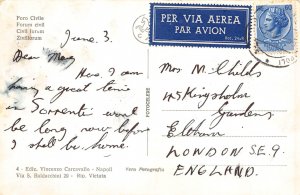 Foro Civile
Forum civil
Civil forum
Zivilforum
June. 3.
Dear Mag
Here I am
having a great time
in Sorrento. Won't
be long now before
I shall be home.
4 - Ediz. Vincenzo Carcavallo - Napoli
Via S. Baldacchini 29 - Rio. Vietata
FOTOCELERE
Vera Fotografia
PER VIA AEREA
PAR AVION
Mrs. M. Childs
Kingsholm
Gardens
Eltham
LONDON SE.9.
ENGLAND.